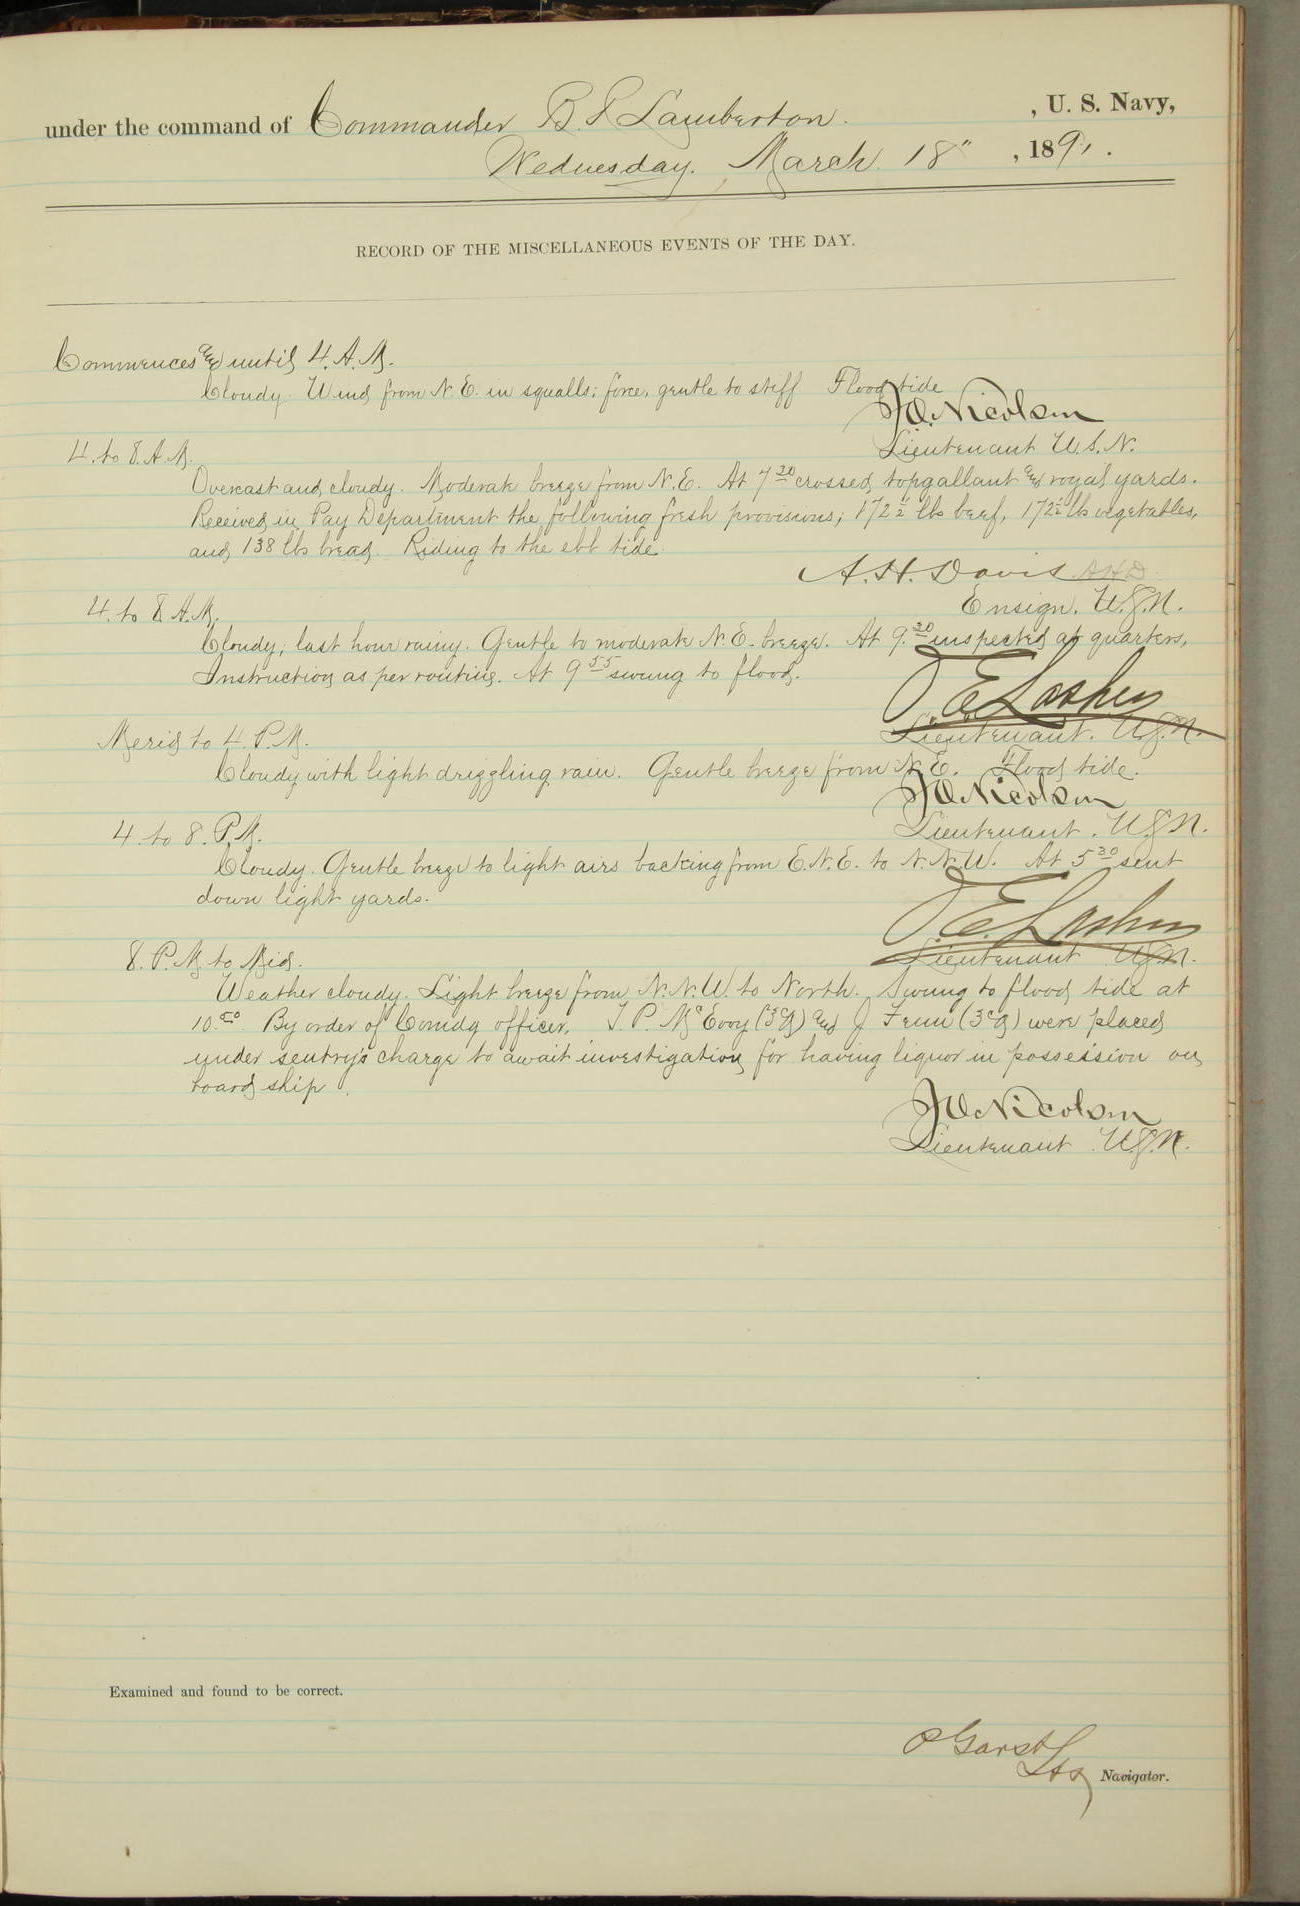 under the command of Commander B. P. Lamberton. , U. S. Navy,
Wednesday. March 18" , 1891.
RECORD OF THE MISCELLANEOUS EVENTS OF THE DAY.
Commences and until 4. A. M.
Cloudy. Wind from N. E. in squalls; force, gentle to stiff Flood tide
Nicolson
Lieutenant U.S.N.
4. to 8. A. M.
Overcast and cloudy. Moderate breeze from N. E. At 7.30 crossed topgallant and royal yards.
Received in Pay Department the following fresh provisions; 172½ lbs beef, 172½ lbs vegetables,
and 138 lbs bread. Riding to the ebb tide.
A. H. Davis AHD
Ensign. U.S.N.
4. to 8 A. M.
Cloudy; last hour rainy. Gentle to moderate N. E. breeze. At 9.30 inspected at quarters,
Instruction as per routine. At 9 55 swung to flood.
Lieutenant. U.S.N.
Merid to 4. P. M.
Cloudy with light drizzling rain. Gentle breeze from N. E. Flood tide.
Nicolson
Lieutenant. U.S.N.
4. to 8. P. M.
Cloudy. Gentle breeze to light airs backing from E. N. E. to N. N. W. At 5 30 sent
down light yards.
Lieutenant U.S.N.
8. P. M. to Mid.
Weather cloudy. Light breeze from N. N. W. to North. Swung to flood tide at
10.50 By order of Comdg officer, T. P. McEvoy (3cg) and J Fenn (3cg) were placed
under sentry's charge to await investigation for having liquor in possession on
board ship.
Nicolson
Lieutenant U.S.N.
Examined and found to be correct.
P Garst
Navigator.